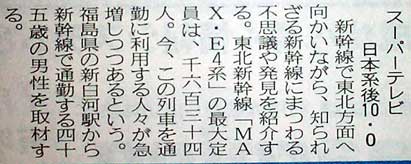 スーパーテレビ
日本系後10・0
新幹線で東北方面へ
向かいながら、知られ
ざる新幹線にまつわる
不思議や発見を紹介す
る。東北新幹線「MA
X・E4系」の最大定
員は、千六百三十四
人。今、この列車を通
勤に利用する人々が急
増しつつあるという。
福島県の新白河駅から
新幹線で通勤する四十
五歳の男性を取材す
る。